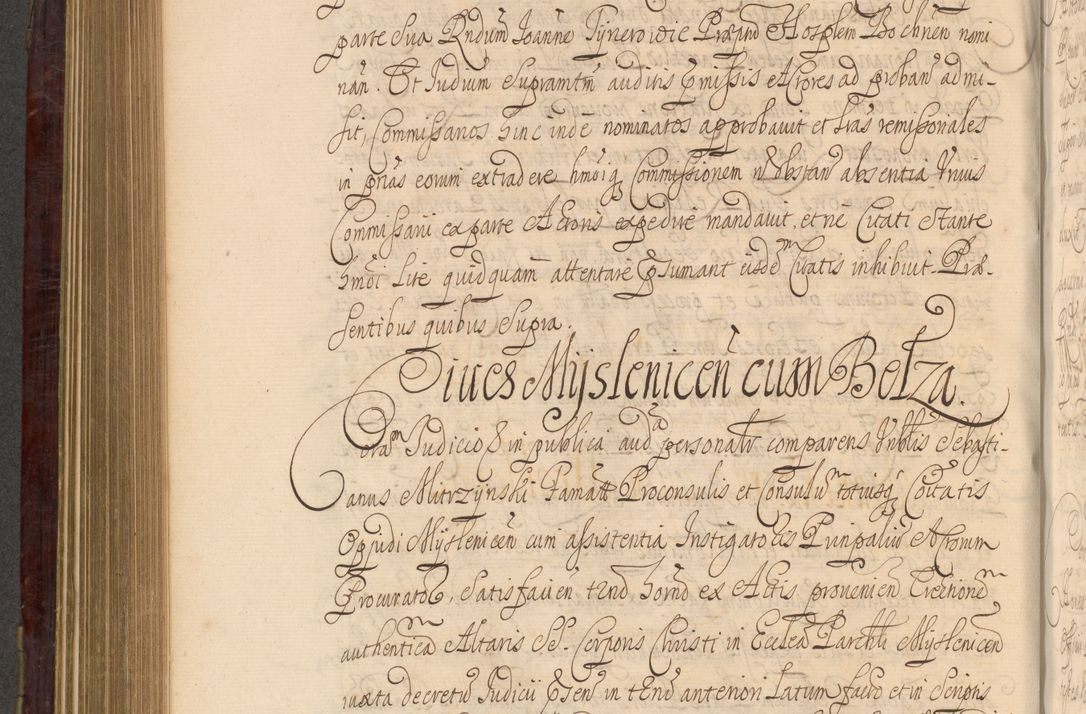 parte sua Rndum Joanne Tyneroidic Præpnd Hosplem Bochnen nomi
nan. Et Judium Supramtm auditis pmissis Actores ad proban admi-
sit, Commissarios hinc inde nominatos approbavit et lras remissoriales
in prias eorum extradere hmoiq Commissionem n obstan absentia Unius
Commissarii ex parte Actoris expedire mandavit, et ne Citati stante
hmoi Lite quidquam attentare psumant eisdem Citatis inhibuit. Præ-
sentibus quibus Supra.
Cives Myslenicen cum Betza.
Coram Judicio & in publica auda personalr comparens Sebasti-
anus Mitrzynski Famatt Proconsulis et Consulum totiusq Coitatis
Opidi Myslenicen cum assistentia Instigatoris Prinpaliu Actorum
Procurator, Satisfacien tend horno ex Actis provenien Erectionem
authenticam Altaris SS. Corporis Christi in Ecclea Parchli Myslenicen
iuxta decretu Judicii psen in tend anteriori Latum facto et in Scriptis